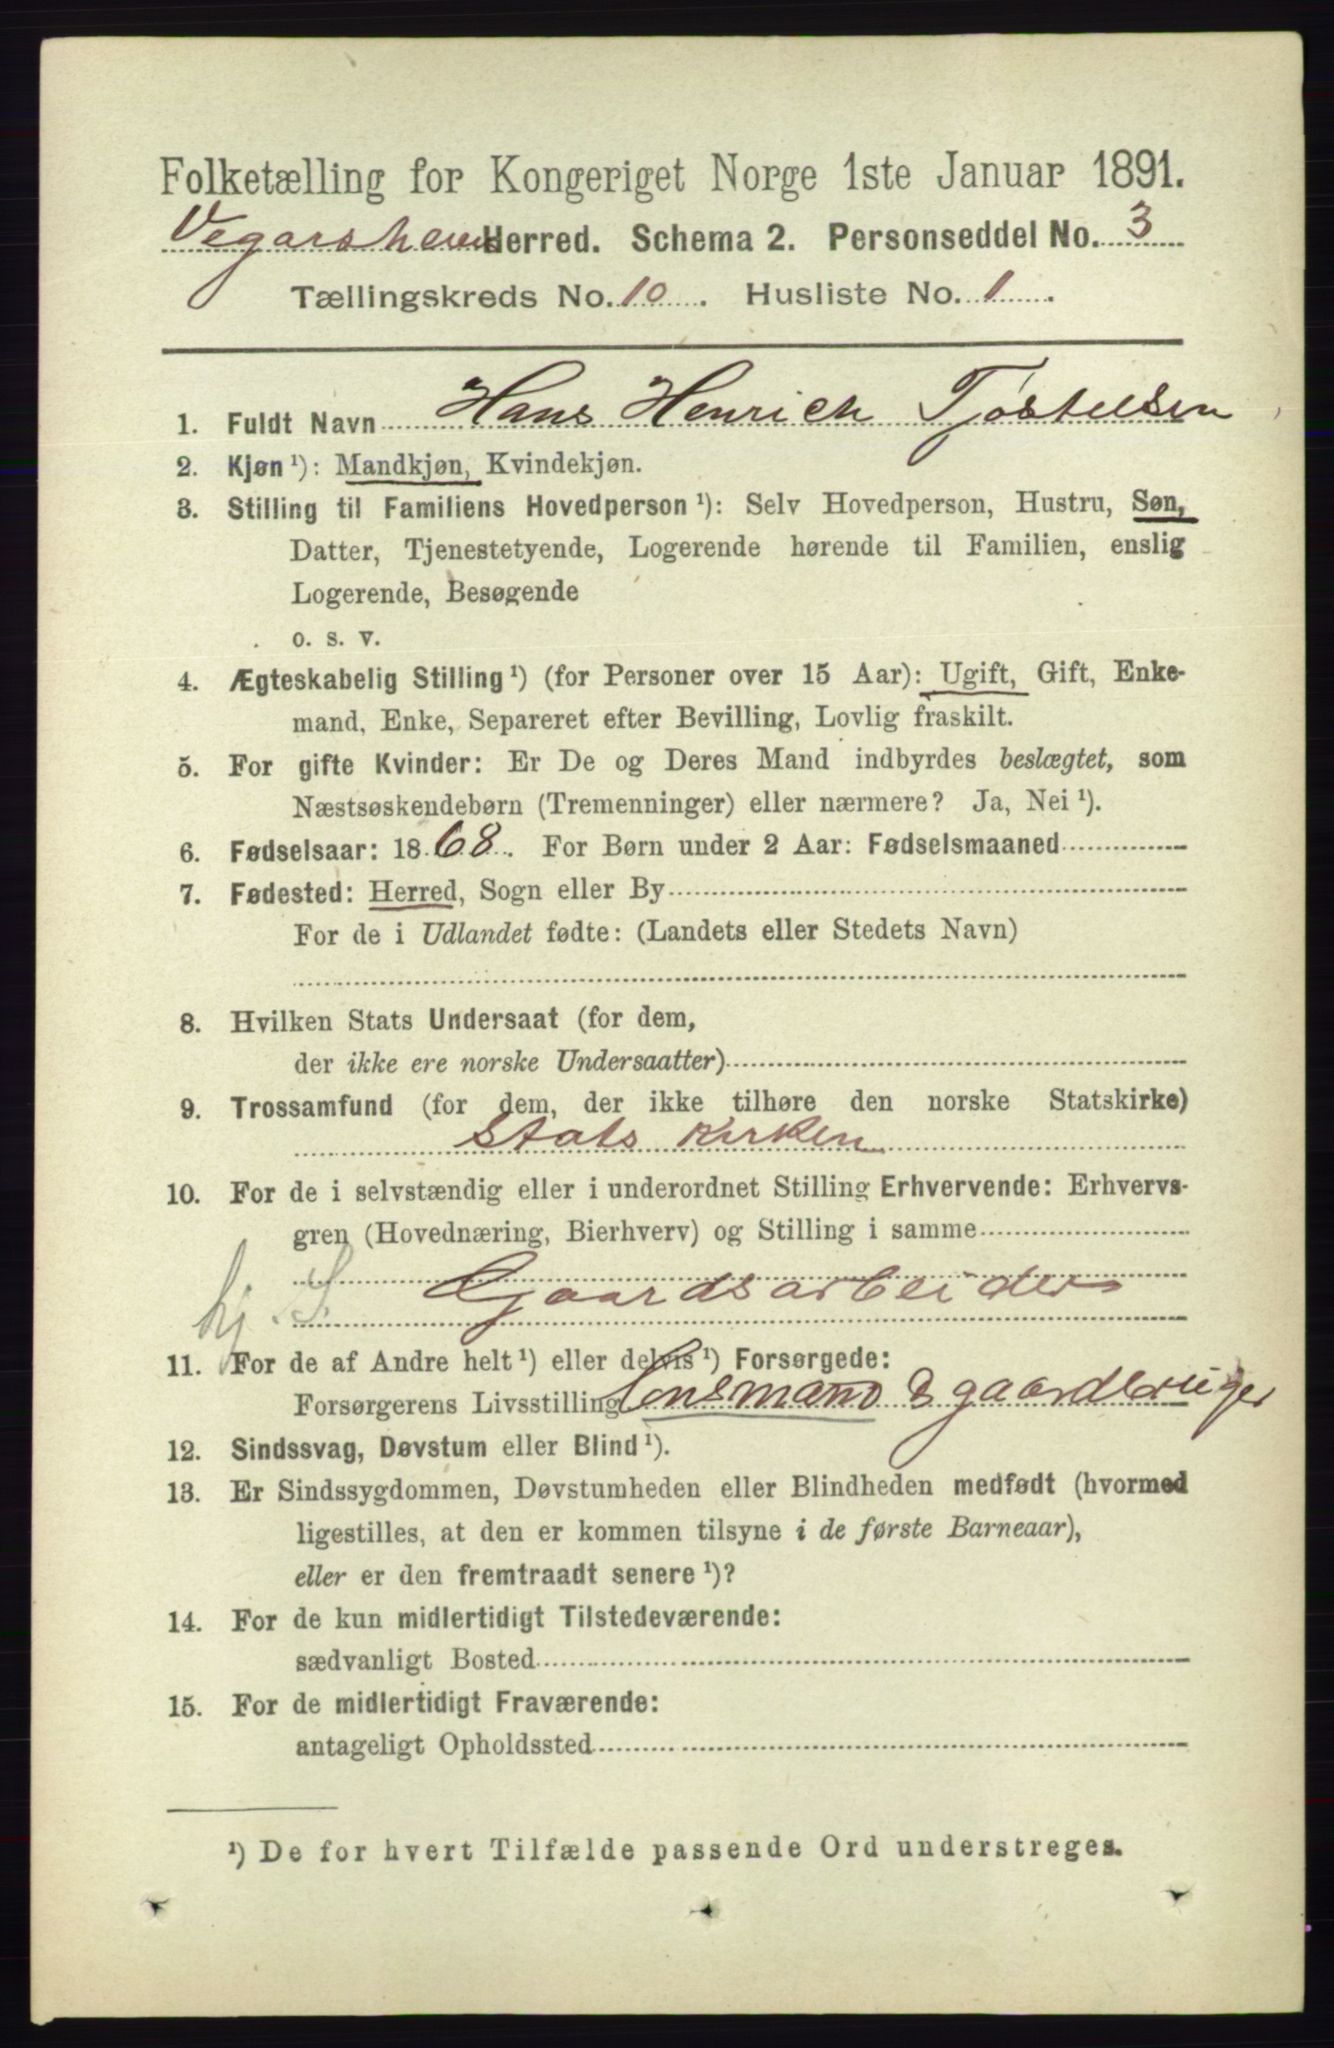 Folketælling for Kongeriget Norge 1ste Januar 1891.
Vegarsheiens Herred. Schema 2. Personseddel No. 3
Tællingskreds No. 10. Husliste No. 1.
1. Fuldt Navn Hans Henrich Tjøstelsen
2. Kjøn ¹): Mandkjøn, Kvindekjøn.
3. Stilling til Familiens Hovedperson ¹): Selv Hovedperson, Hustru, Søn,
Datter, Tjenestetyende, Logerende hørende til Familien, enslig
Logerende, Besøgende
o. s. v.
4. Ægteskabelig Stilling ¹) (for Personer over 15 Aar): Ugift, Gift, Enke-
mand, Enke, Separeret efter Bevilling, Lovlig fraskilt.
5. For gifte Kvinder: Er De og Deres Mand indbyrdes beslægtet, som
Næstsøskendebørn (Tremenninger) eller nærmere? Ja, Nei ¹).
6. Fødselsaar: 1868. For Børn under 2 Aar: Fødselsmaaned
7. Fødested: Herred, Sogn eller By
For de i Udlandet fødte: (Landets eller Stedets Navn)
8. Hvilken Stats Undersaat (for dem,
der ikke ere norske Undersaatter)
9. Trossamfund (for dem, der ikke tilhøre den norske Statskirke)
Stats kirken
10. For de i selvstændig eller i underordnet Stilling Erhvervende: Erhvervs-
gren (Hovednæring, Bierhverv) og Stilling i samme
hj. S. Gaardsarbeider
11. For de af Andre helt ¹) eller delvis ¹) Forsørgede:
Forsørgerens Livsstilling Lensmand & gaardbruger
12. Sindssvag, Døvstum eller Blind ¹).
13. Er Sindssygdommen, Døvstumheden eller Blindheden medfødt (hvormed
ligestilles, at den er kommen tilsyne i de første Barneaar),
eller er den fremtraadt senere ¹)?
14. For de kun midlertidigt Tilstedeværende:
sædvanligt Bosted
15. For de midlertidigt Fraværende:
antageligt Opholdssted
¹) De for hvert Tilfælde passende Ord understreges.